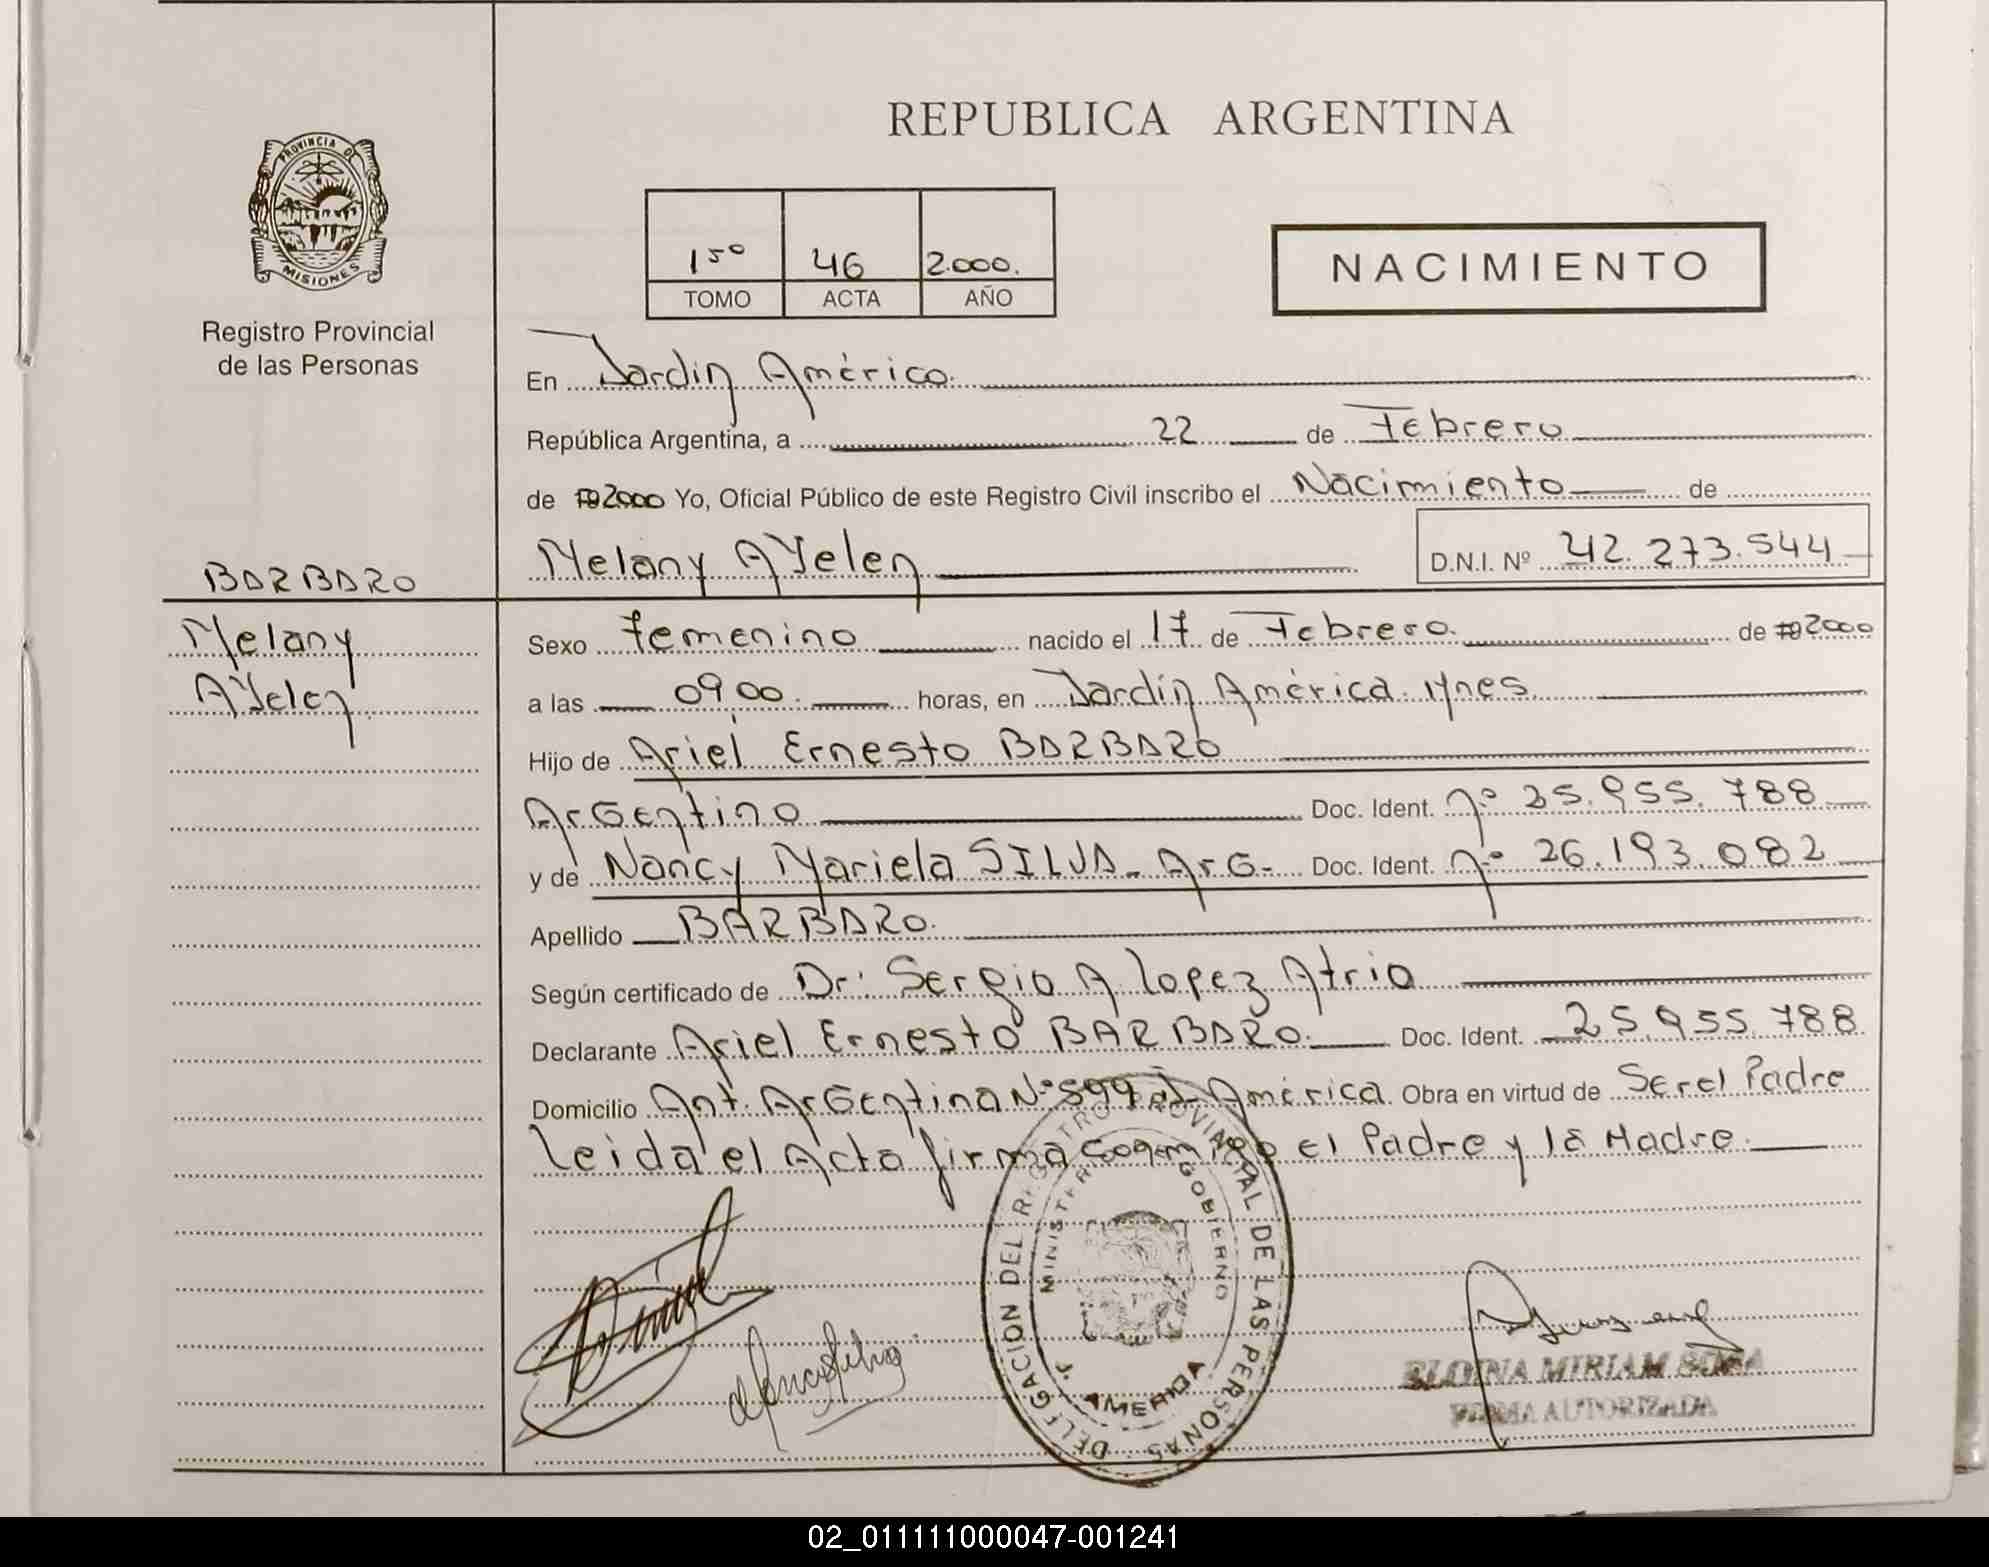 REPUBLICA ARGENTINA
PROVINCIA DE
MISIONES
Registro Provincial
de las Personas
1 5º 46 2.000.
TOMO ACTA AÑO
NACIMIENTO
En Jardin América.
República Argentina, a 22 de Febrero
de 2000 Yo, Oficial Público de este Registro Civil inscribo el Nacimiento de
Melany AYelen D.N.I. Nº 42.273.544
BARBARO
Melany
AYelen
Sexo Femenino nacido el 17 de Febrero. de 2000
a las 09,00. horas, en Jardín América. Mnes.
Hijo de Ariel Ernesto BARBARO
ArGentino Doc. Ident. nº 25.955.788
y de Nancy Mariela SILVA - ArG - Doc. Ident. nº 26.193.082
Apellido BARBARO.
Según certificado de Dr: Sergio A. Lopez Atrio
Declarante Ariel Ernesto BARBARO. Doc. Ident. 25.955.788
Domicilio Ant. ArGentina Nº 599 América. Obra en virtud de Ser el Padre
Leida el Acta firma conmigo el Padre y la Madre.
DELEGACION DEL REGISTRO PROVINCIAL DE LAS PERSONAS
MINISTER GOBIERNO
J. AMERICA
ELOINA MIRIAM SOSA
FIRMA AUTORIZADA
02_011111000047-001241